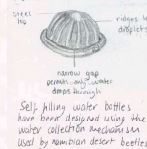 steel
ridges
droplet
narrow gap
permits only water
drops through
Self filling water bottles
have been designed using the
water collection mechanism
used by namibian desert beetles